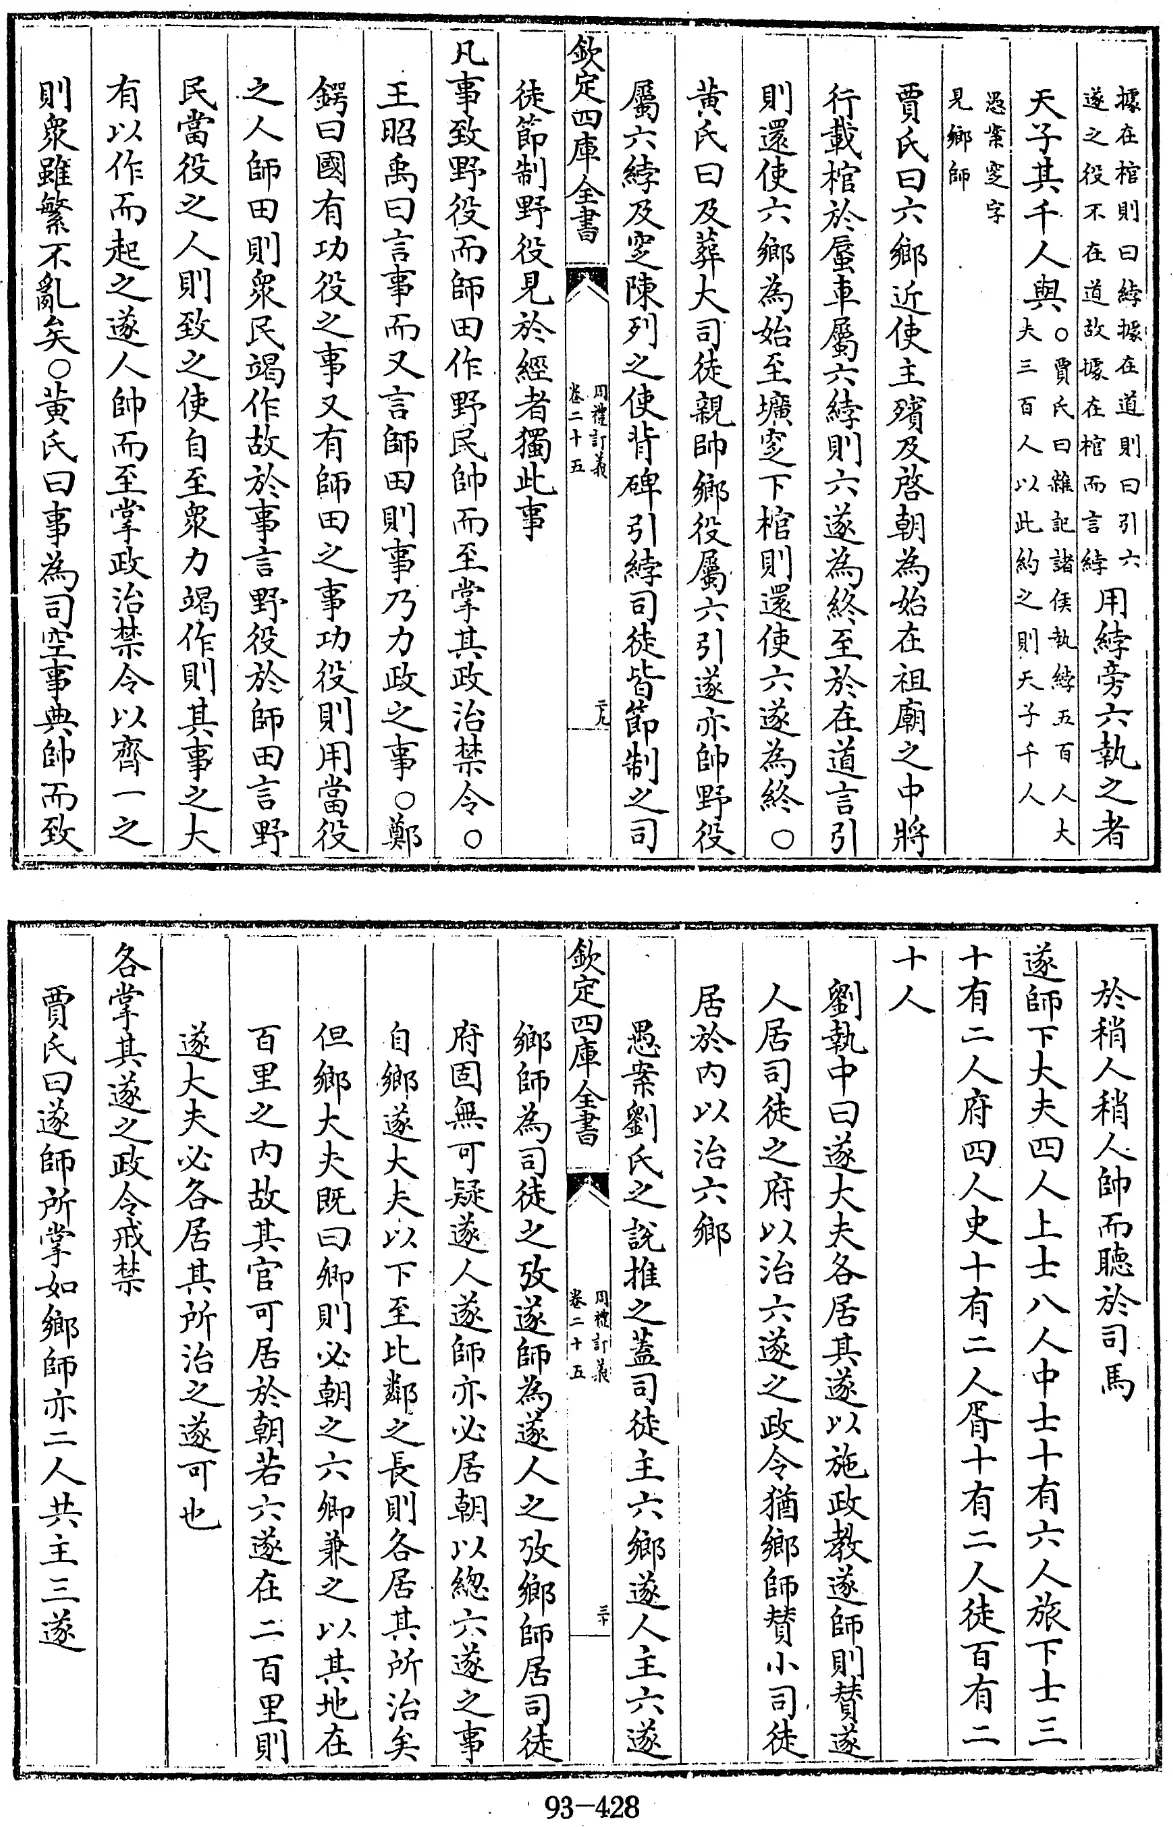 據在棺則曰綍據在道則曰引六
遂之役不在道故據在棺而言綍
用綍旁六執之者
天子其千人與○
賈氏曰雜記諸侯執綍五百人大
夫三百人以此約之則天子千人
愚案窆字
見鄉師
賈氏曰六鄉近使主殯及啓朝為始在祖廟之中將
行載棺於蜃車屬六綍則六遂為終至於在道言引
則還使六鄉為始至壙窆下棺則還使六遂為終○
黃氏曰及葬大司徒親帥鄉役屬六引遂亦帥野役
屬六綍及窆陳列之使背碑引綍司徒皆節制之司
欽定四庫全書
周禮訂義
卷二十五
二九
徒節制野役見於經者獨此事
凡事致野役而師田作野民帥而至掌其政治禁令○
王昭禹曰言事而又言師田則事乃力政之事○鄭
鍔曰國有功役之事又有師田之事功役則用當役
之人師田則衆民竭作故於事言野役於師田言野
民當役之人則致之使自至衆力竭作則其事之大
有以作而起之遂人帥而至掌政治禁令以齊一之
則衆雖繁不亂矣○黃氏曰事為司空事典帥而致
於稍人稍人帥而聽於司馬
遂師下大夫四人上士八人中士十有六人旅下士三
十有二人府四人史十有二人胥十有二人徒百有二
十人
劉執中曰遂大夫各居其遂以施政教遂師則贊遂
人居司徒之府以治六遂之政令猶鄉師贊小司徒
居於內以治六鄉
愚案劉氏之說推之蓋司徒主六鄉遂人主六遂
欽定四庫全書
周禮訂義
卷二十五
三十
鄉師為司徒之攷遂師為遂人之攷鄉師居司徒
府固無可疑遂人遂師亦必居朝以總六遂之事
自鄉遂大夫以下至比鄰之長則各居其所治矣
但鄉大夫既曰卿則必朝之六卿兼之以其地在
百里之內故其官可居於朝若六遂在二百里則
遂大夫必各居其所治之遂可也
各掌其遂之政令戒禁
賈氏曰遂師所掌如鄉師亦二人共主三遂
93-428